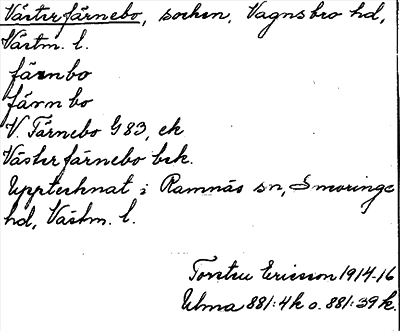 Västerfärnebo, socken, Vagnsbro hd,
Västm. l.
färnbo
färnbo
V. Färnebo G83, ek
Västerfärnebo bek.
Upptecknat i Ramnäs sn, Snevringe
hd, Västm. l.
Torsten Ericsson 1914-16
Ulma 881:4 k o. 881:39 k.